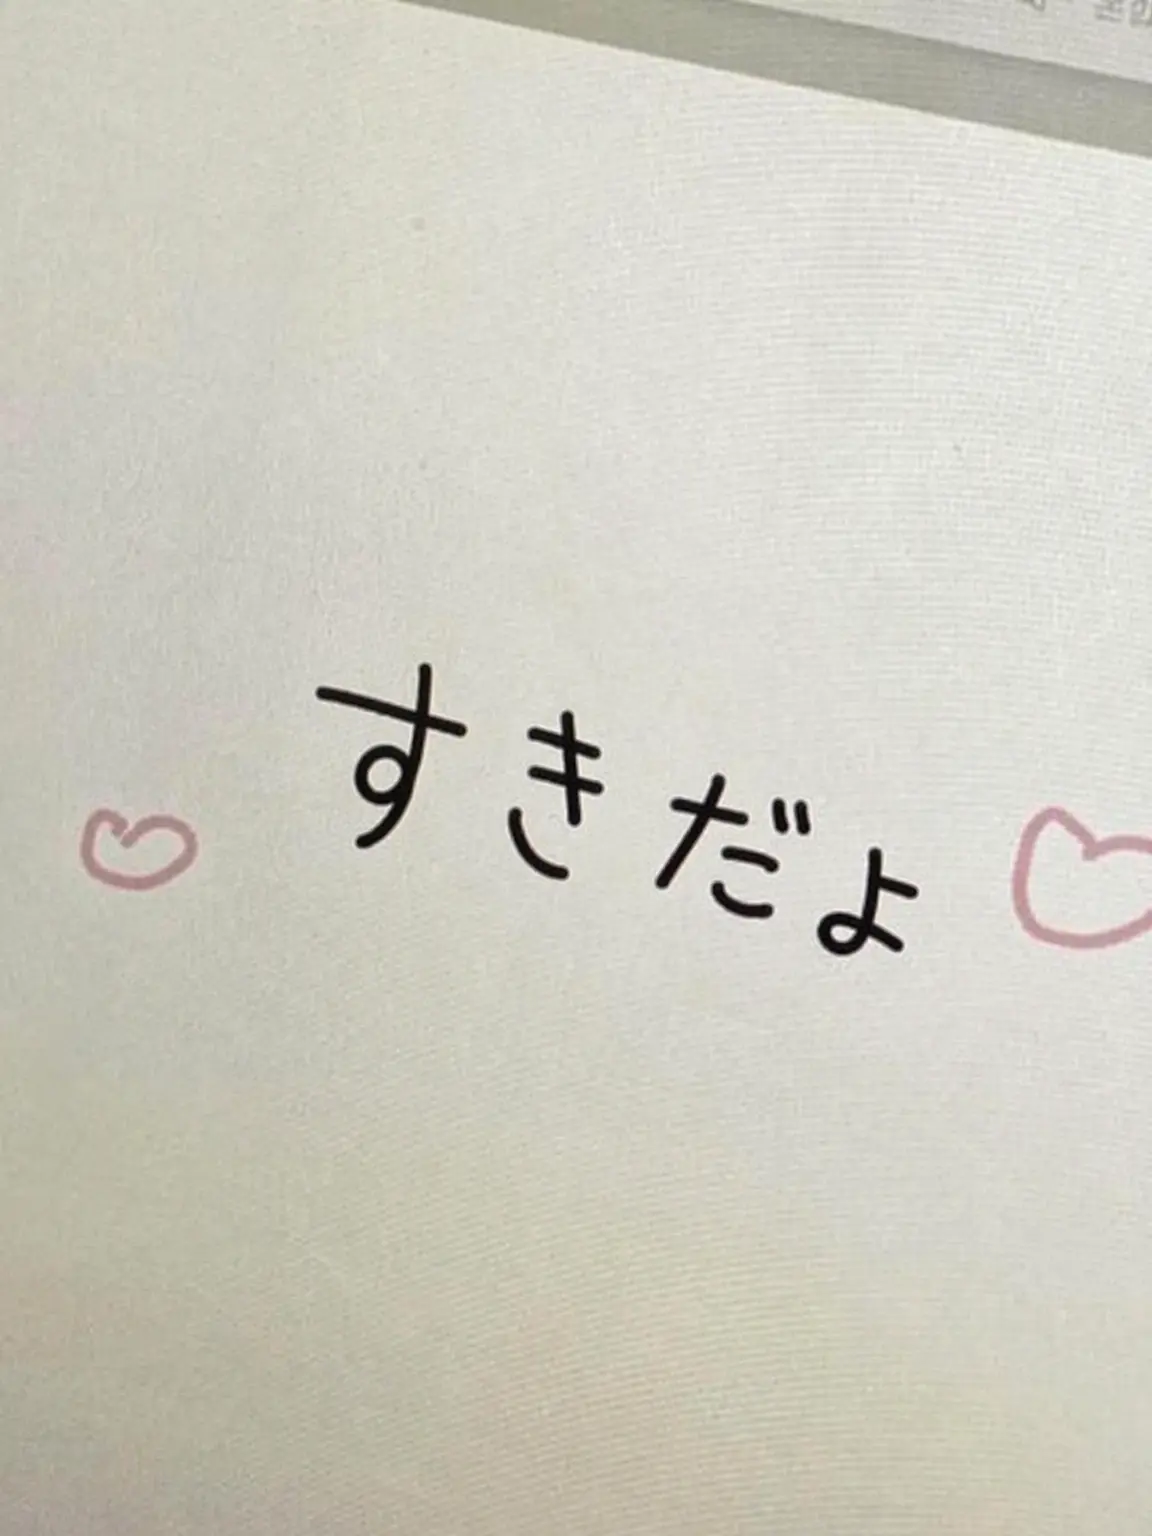 すきだよ